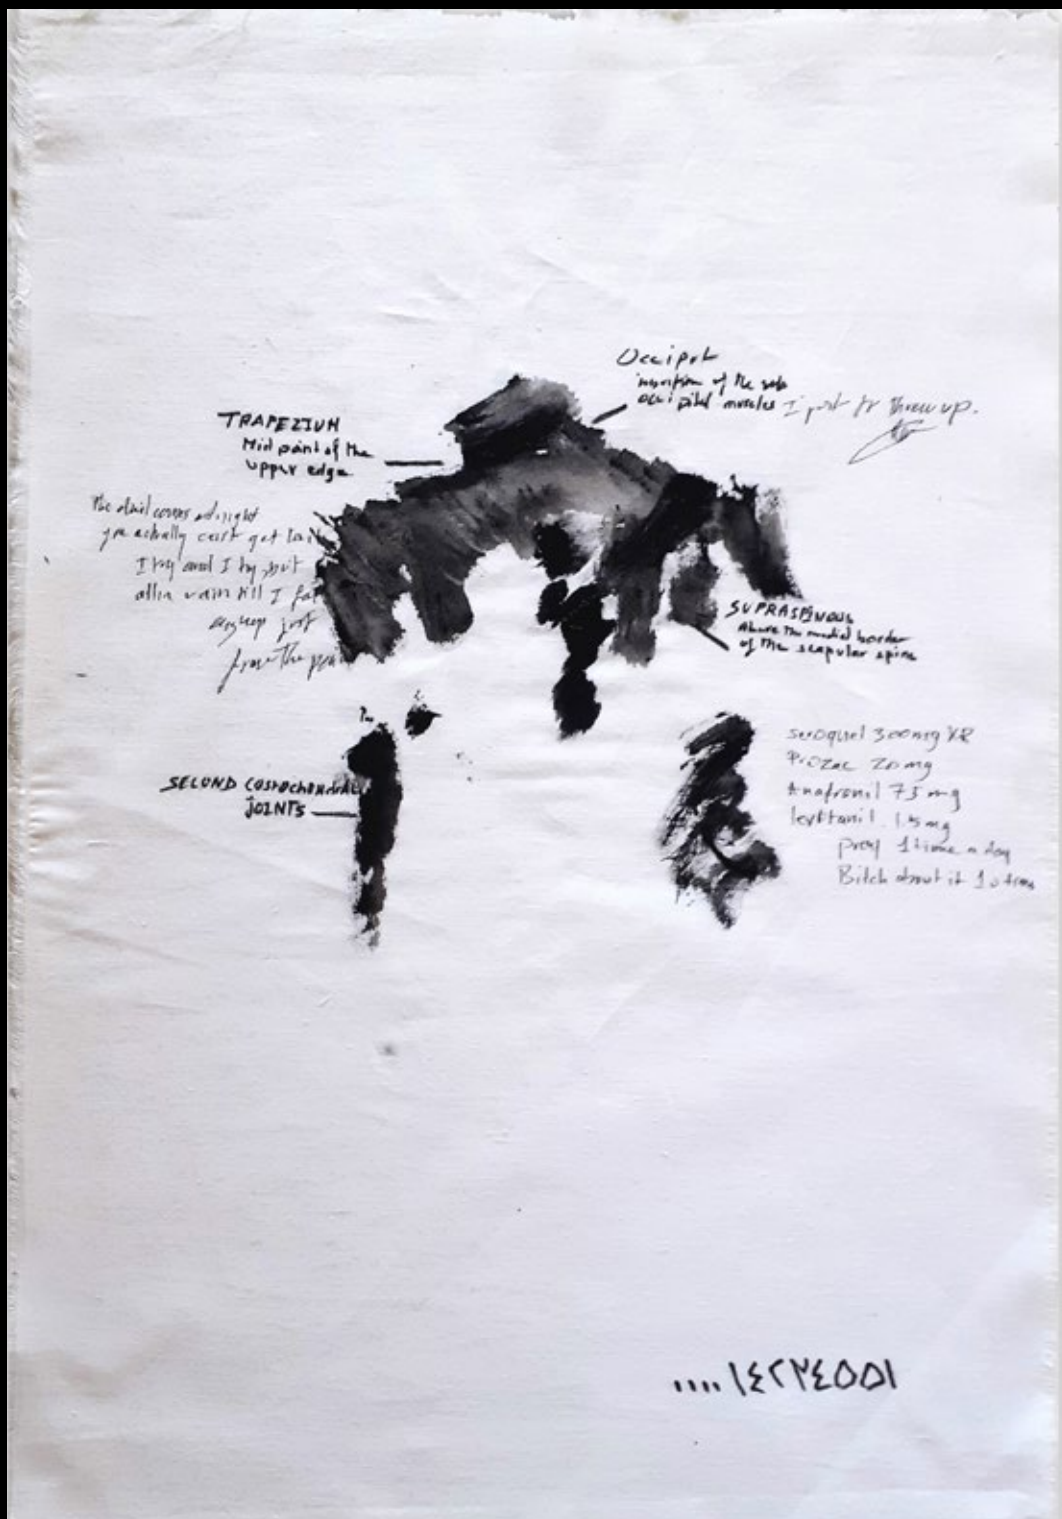 Occiput
insertion of the sub
occipital muscles I just threw up.
TRAPEZIUM
Mid point of the
upper edge
you actually can't get
I try and I try but
all in vain till I
asleep just
from the
SUPRASPINOUS
Above the medial border
of the scapular spine
SECOND COSTOCHONDRAL
JOINTS
seroquel 300mg XR
Prozac 20mg
Anafronil 75mg
1.5mg
1 time a day
Bitch about it 10 times
....١٤٢٣٤٥٥١